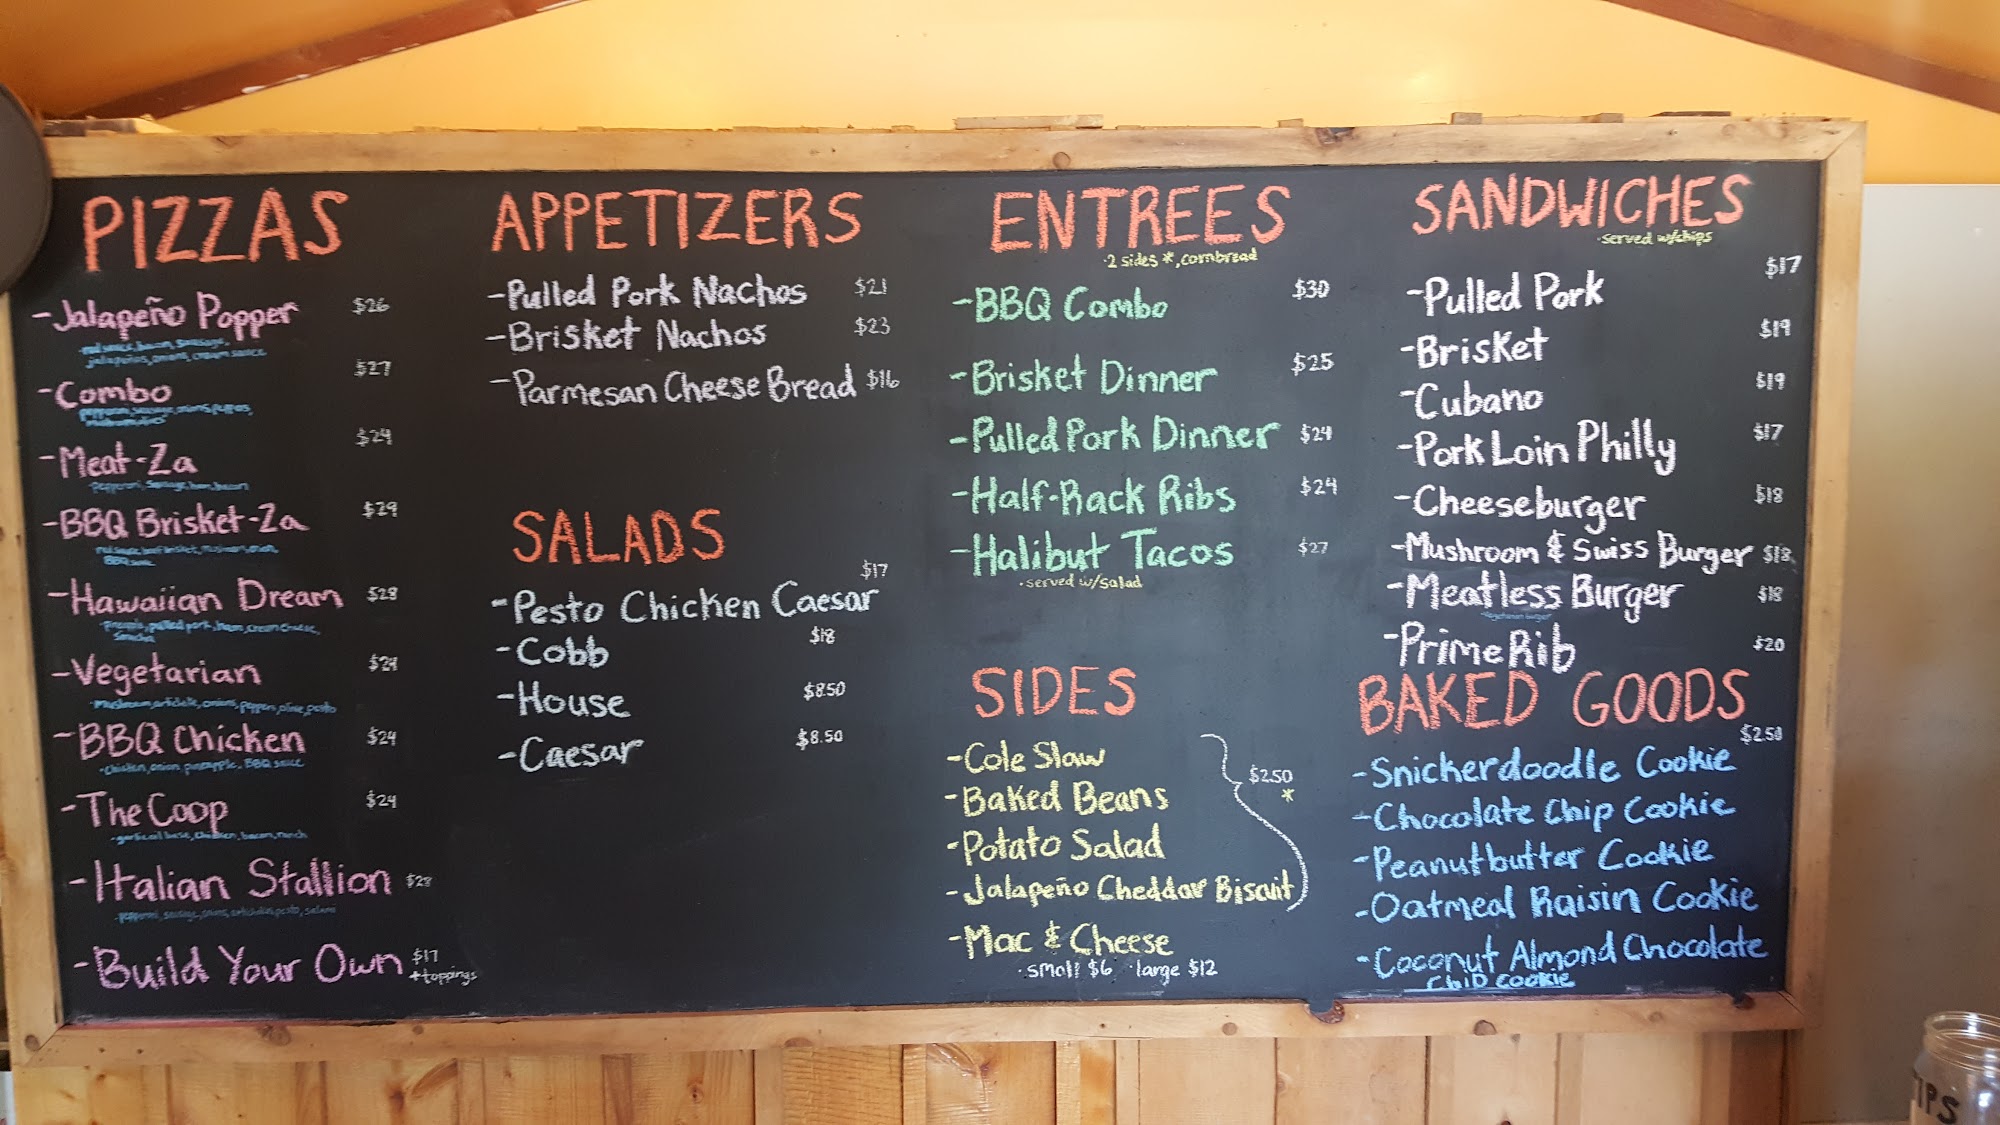 PIZZAS
-Jalapeño Popper $26
·red sauce, bacon, sausage,
jalapeños, onions, cream sauce
-Combo $27
pepperoni, sausage, onions, peppers,
mushrooms
-Meat-Za $29
·pepperoni, sausage, ham, bacon
-BBQ Brisket-Za $29
red sauce, beef brisket, mushroom, onion,
BBQ sauce
-Hawaiian Dream $28
·pineapple, pulled pork, ham, cream cheese,
-Vegetarian $24
·mushroom, artichoke, onions, peppers, olive, pesto
-BBQ Chicken $24
·chicken, onion, pineapple, BBQ sauce
-The Coop $24
·garlic oil base, chicken, bacon, ranch
-Italian Stallion $28
·pepperoni, sausage, onions, artichokes, pesto, salami
-Build Your Own $17
+toppings
APPETIZERS
-Pulled Pork Nachos $21
-Brisket Nachos $23
-Parmesan Cheese Bread $16
SALADS
-Pesto Chicken Caesar $17
-Cobb $18
-House $8.50
-Caesar $8.50
ENTREES
·2 sides *, cornbread
-BBQ Combo $30
-Brisket Dinner $25
-Pulled Pork Dinner $24
-Half-Rack Ribs $24
-Halibut Tacos $27
·served w/salad
SIDES
-Cole Slaw
-Baked Beans
-Potato Salad
-Jalapeño Cheddar Biscuit
$2.50
*
-Mac & Cheese
·small $6 ·large $12
SANDWICHES
·served w/chips
-Pulled Pork $17
-Brisket $19
-Cubano $19
-Pork Loin Philly $17
-Cheeseburger $18
-Mushroom & Swiss Burger $18
-Meatless Burger $18
·vegetarian burger
-Prime Rib $20
BAKED GOODS
$2.50
-Snickerdoodle Cookie
-Chocolate Chip Cookie
-Peanutbutter Cookie
-Oatmeal Raisin Cookie
-Coconut Almond Chocolate
Chip Cookie
TIPS